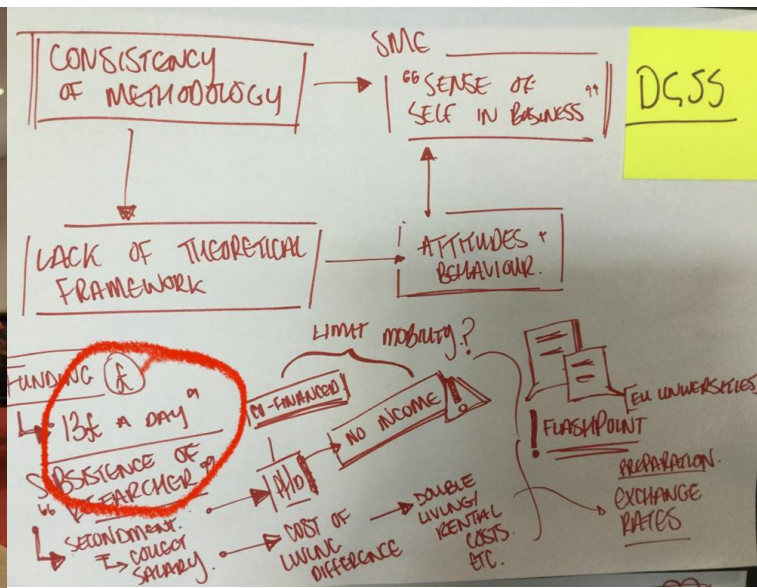 CONSISTENCY
OF METHODOLOGY
SME
"SENSE OF
SELF IN BUSINESS"
DGSS
LACK OF THEORETICAL
FRAMEWORK
ATTITUDES
BEHAVIOUR.
FUNDING £
13£ A DAY"
SUBSISTENCE OF
RESEARCHER"
" SECONDMENT.
COLLECT
SALARY.
LIMIT MOBILITY?
CO-FINANCED
NO INCOME!
COST OF
LIVING
DIFFERENCE
DOUBLE
LIVING/
RENTAL
COSTS.
ETC.
EU UNIVERSITIES
! FLASHPOINT
PREPARATION.
EXCHANGE
RATES